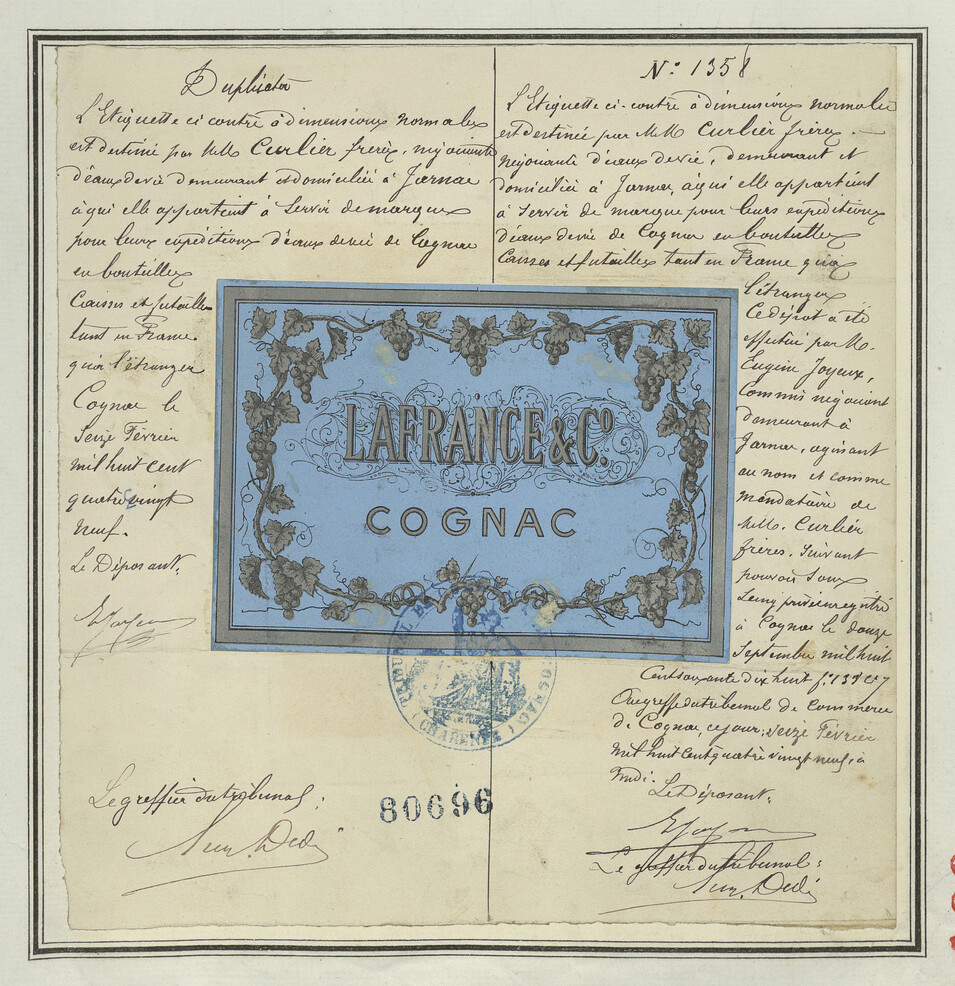 Duplicata
L'Etiquette ci contre à dimensions normales
est destinée par MM Curlier frères, négociants
d'eaux de vie demeurant et domiciliés à Jarnac
à qui elle appartient à Servir de marque
pour leurs expéditions d'eaux de vie de Cognac
en bouteilles
Caisses et futailles
tant en France
qu'à l'étranger
Cognac le
Seize Février
mil huit cent
quatre vingt
neuf.
Le Déposant,
Le greffier du tribunal:
N° 1358
L'Etiquette ci-contre à dimensions normales
est destinée par MM Curlier frères.
négociants d'eaux de vie, demeurant et
domiciliés à Jarnac, à qui elle appartient
à servir de marque pour leurs expéditions
d'eaux de vie de Cognac en bouteilles
Caisses et futailles tant en France qu'à
l'étranger
Ce dépôt a été
effectué par M.
Eugène Joyeux,
Commis négociant
demeurant à
Jarnac, agissant
au nom et comme
mandataire de
MM. Curlier
frères. Suivant
pouvoir sous
seing privé enregistré
à Cognac le douze
Septembre mil huit
Cent soixante dix huit f° 139
Au greffe du tribunal de Commerce
de Cognac, ce jour; seize Février
mil huit cent quatre vingt neuf, à
midi.
Le Déposant.
Le greffier du tribunal:
LAFRANCE & Cº.
COGNAC
TRIBUNAL DE COGNAC
(CHARENTE)
80696